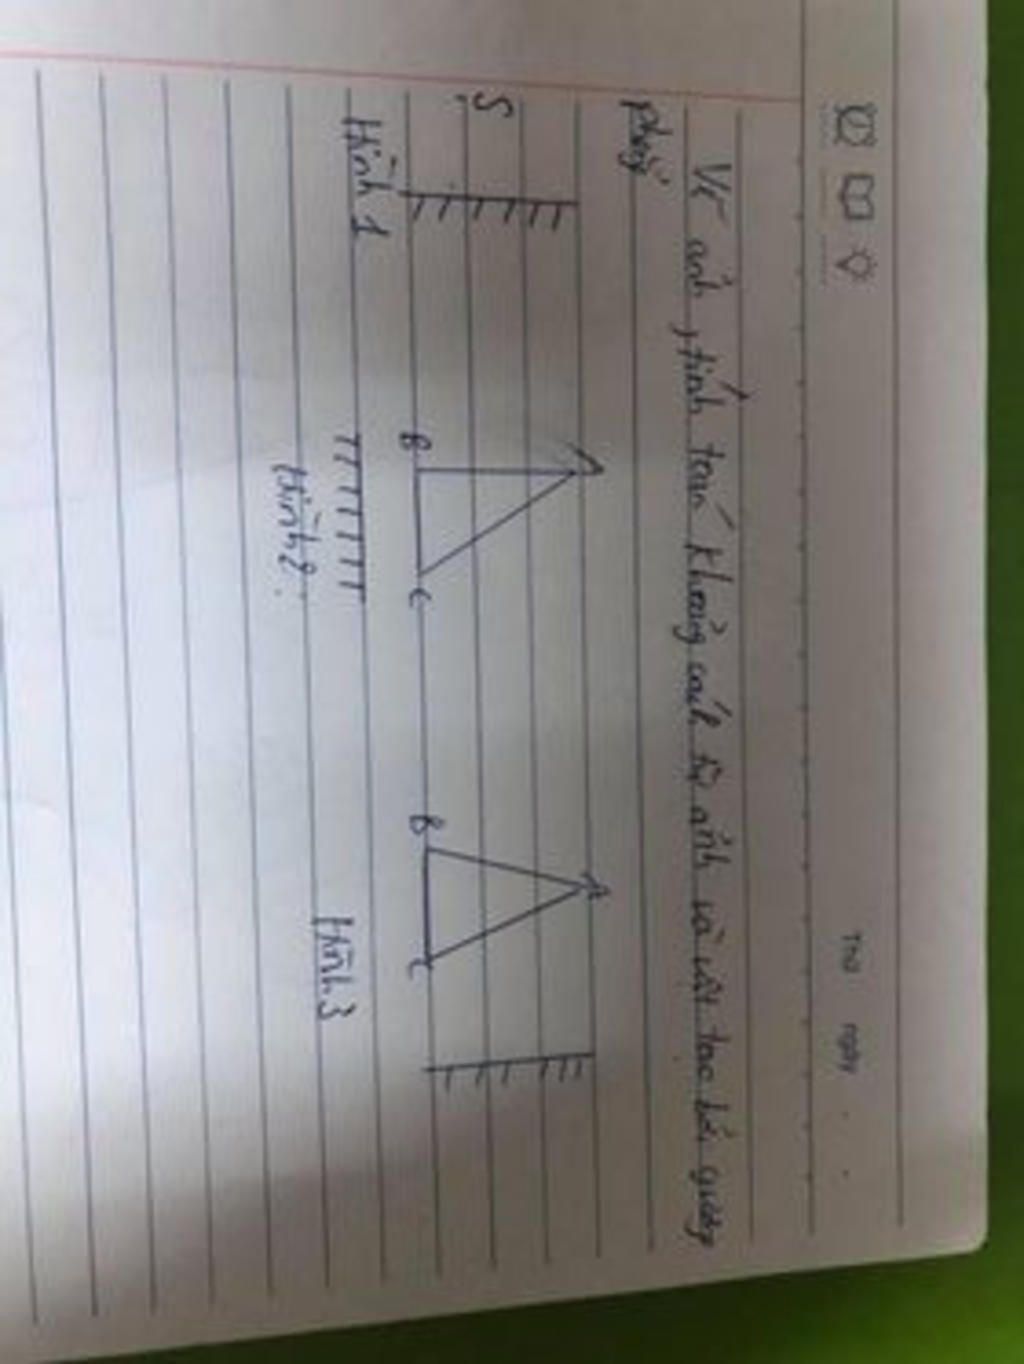 Thứ ngày
Vẽ ảnh, tính toán khoảng cách từ ảnh và vật tạo bởi gương
phẳng
A A
S
B C B C
Hình 1 Hình 2 Hình 3